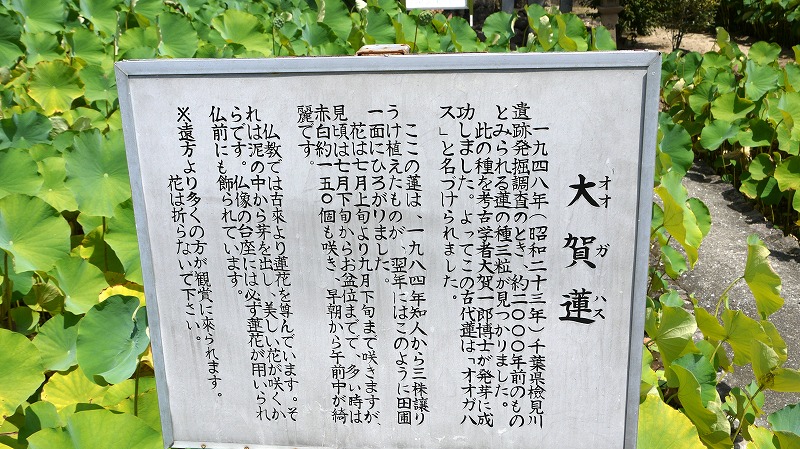 大賀蓮
オオガハス
一九四八年(昭和二十三年)千葉県検見川
遺跡発掘調査のとき、約二〇〇〇年前のもの
とみられる蓮の種三粒が見つかりました。
此の種を考古学者大賀一郎博士が発芽に成
功しました。よってこの古代蓮は「オオガハ
ス」と名づけられました。
ここの蓮は、一九八四年知人から三株譲り
うけ植えたものが、翌年にはこのように田圃
一面にひろがりました。
花は七月上旬より九月下旬まで咲きますが、
見頃は七月下旬からお盆位までで、多い時は
赤白約一五〇個も咲き、早朝から午前中が綺
麗です。
仏教では古来より蓮花を尊んでいます。そ
れは泥の中から芽を出し、美しい花が咲くか
らです。仏像の台座には必ず蓮花が用いられ
仏前にも飾られています。
※遠方より多くの方が観賞に来られます。
花は折らないで下さい。